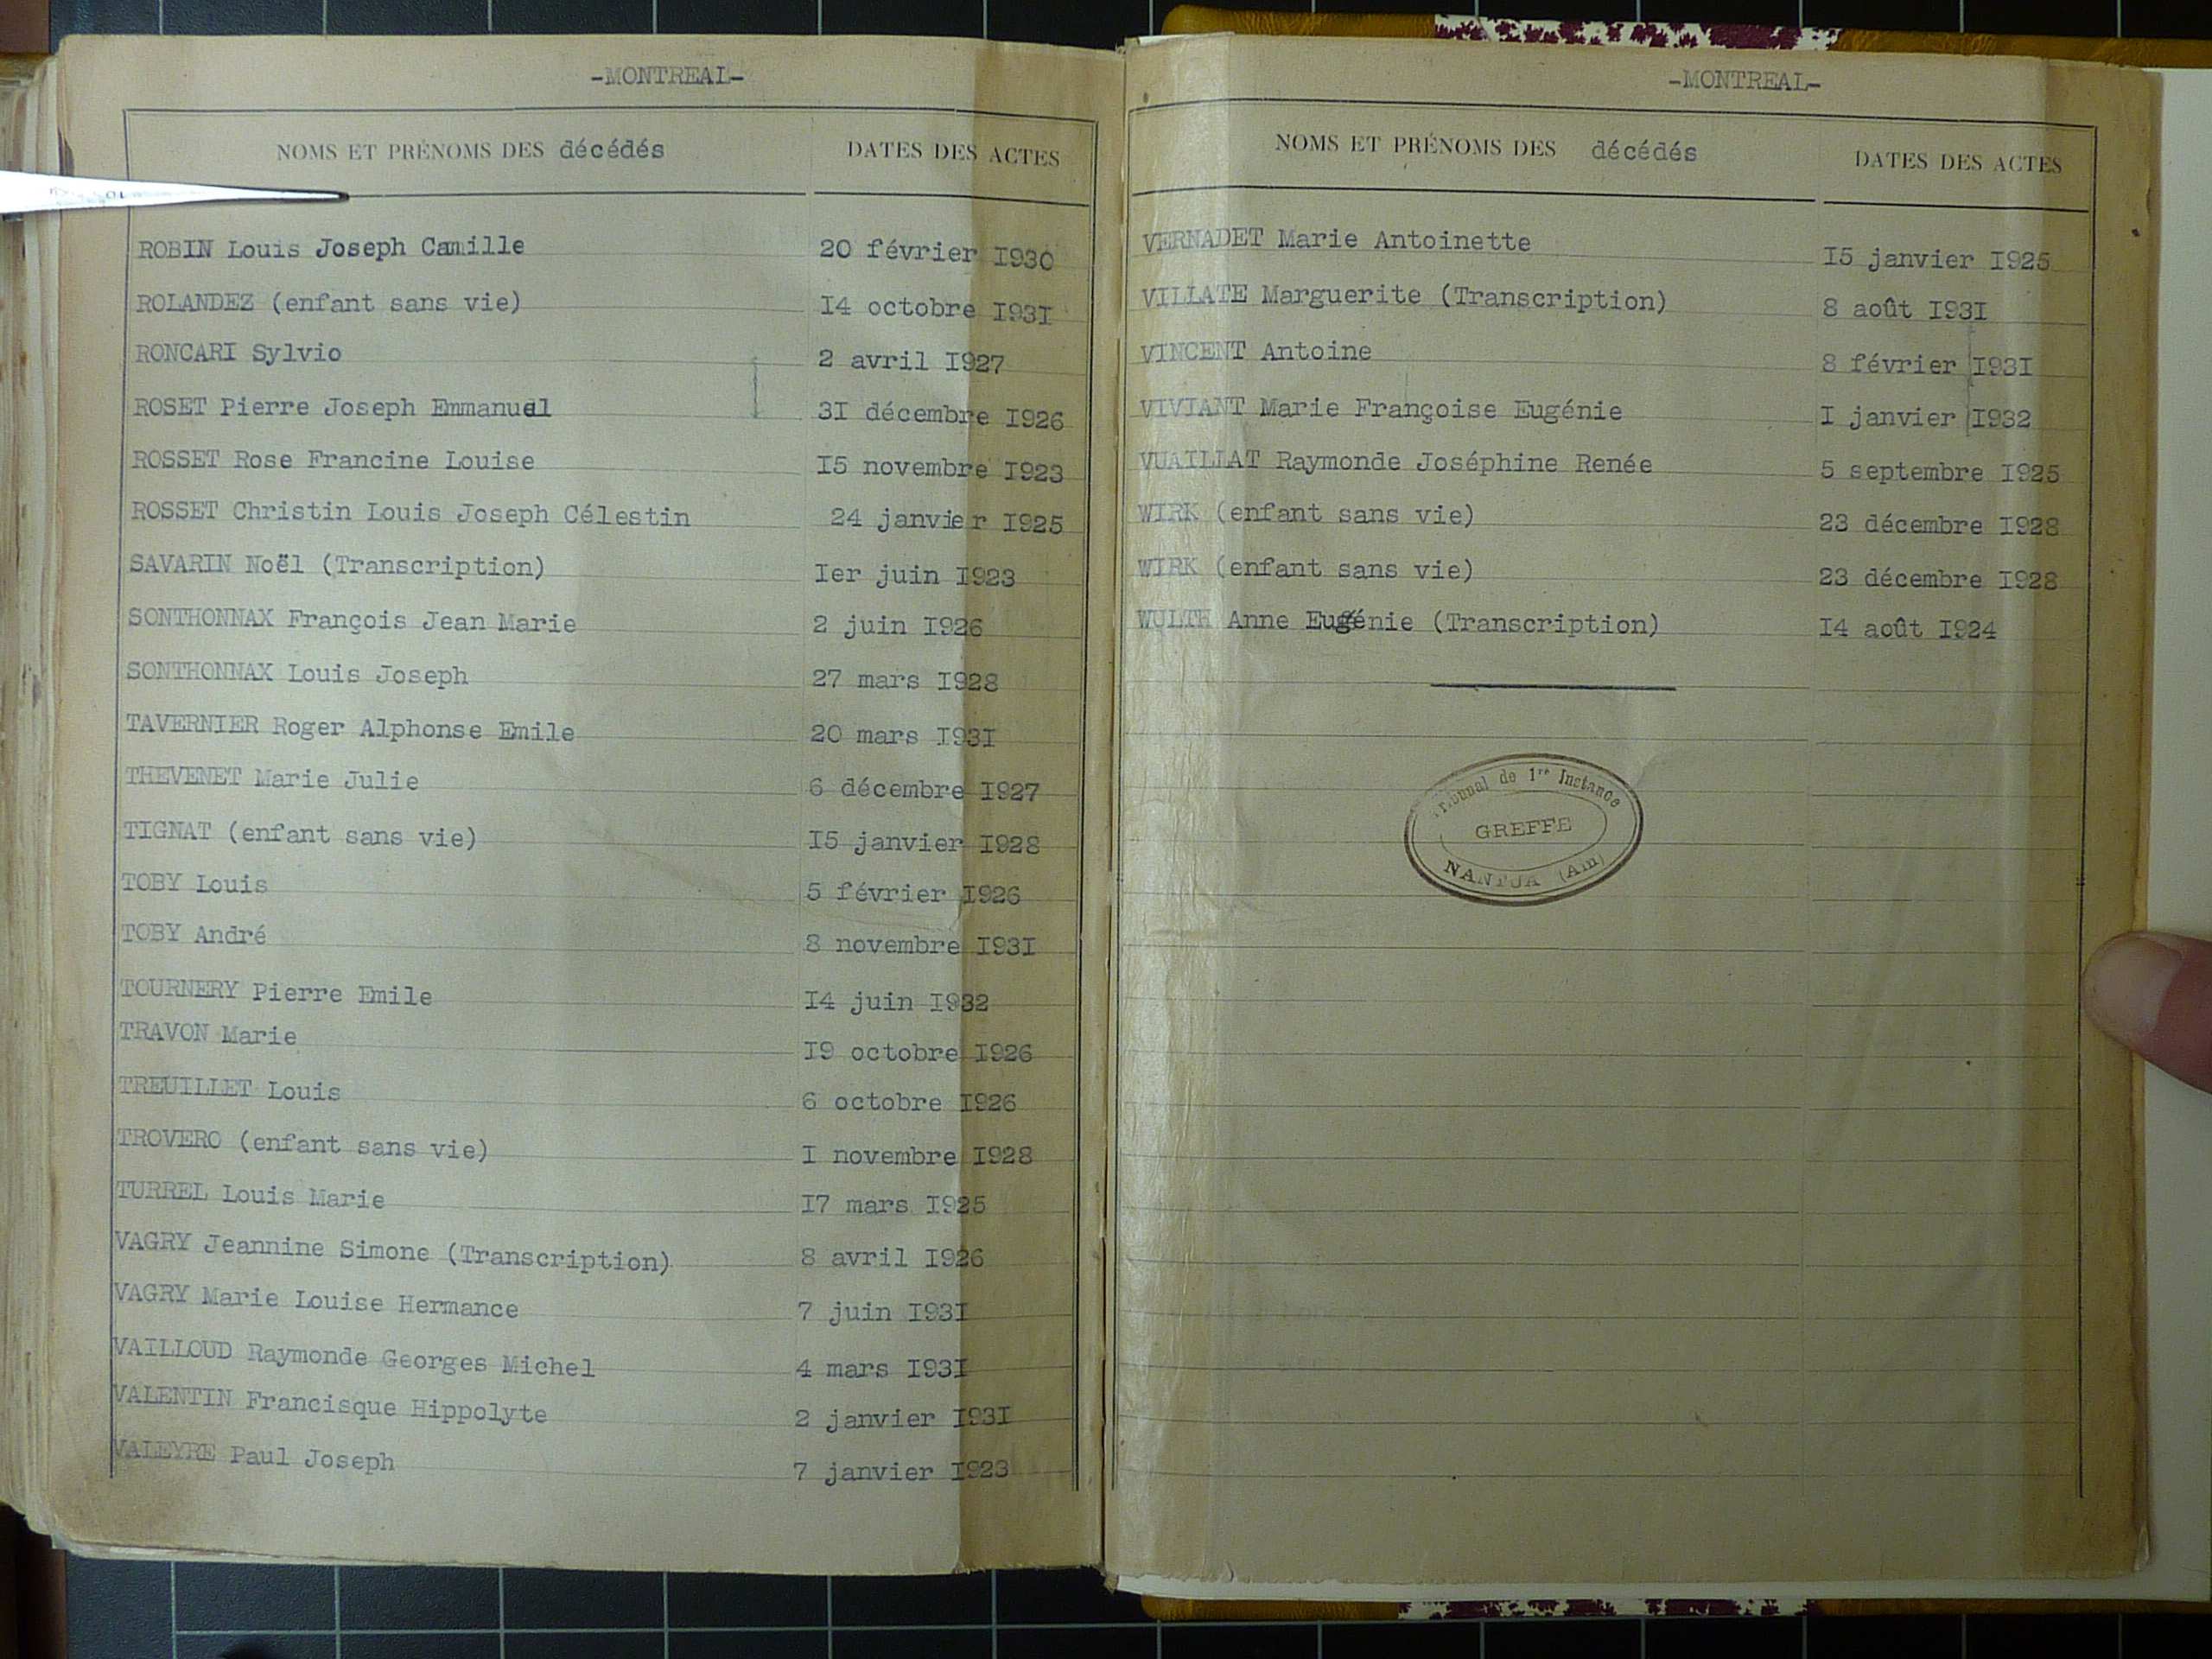 -MONTREAL-
NOMS ET PRÉNOMS DES décédés DATES DES ACTES
ROBIN Louis Joseph Camille 20 février I930
ROLANDEZ (enfant sans vie) I4 octobre I93I
RONCARI Sylvio 2 avril I927
ROSET Pierre Joseph Emmanuel 3I décembre I926
ROSSET Rose Francine Louise I5 novembre I923
ROSSET Christin Louis Joseph Célestin 24 janvier I925
SAVARIN Noël (Transcription) Ier juin I923
SONTHONNAX François Jean Marie 2 juin I926
SONTHONNAX Louis Joseph 27 mars I928
TAVERNIER Roger Alphonse Emile 20 mars I93I
THEVENET Marie Julie 6 décembre I927
TIGNAT (enfant sans vie) I5 janvier I928
TOBY Louis 5 février I926
TOBY André 8 novembre I93I
TOURNERY Pierre Emile I4 juin I932
TRAVON Marie I9 octobre I926
TREUILLET Louis 6 octobre I926
TROVERO (enfant sans vie) I novembre I928
TURREL Louis Marie I7 mars I925
VAGRY Jeannine Simone (Transcription) 8 avril I926
VAGRY Marie Louise Hermance 7 juin I93I
VAILLOUD Raymonde Georges Michel 4 mars I93I
VALENTIN Francisque Hippolyte 2 janvier I93I
VALEYRE Paul Joseph 7 janvier I923
-MONTREAL-
NOMS ET PRÉNOMS DES décédés DATES DES ACTES
VERNADET Marie Antoinette I5 janvier I925
VILLATE Marguerite (Transcription) 8 août I93I
VINCENT Antoine 8 février I93I
VIVIANT Marie Françoise Eugénie I janvier I932
VUAILLAT Raymonde Joséphine Renée 5 septembre I925
WIRK (enfant sans vie) 23 décembre I928
WIRK (enfant sans vie) 23 décembre I928
WULTH Anne Eugénie (Transcription) I4 août I924
Tribunal de 1re Instance
GREFFE
NANTUA (Ain)